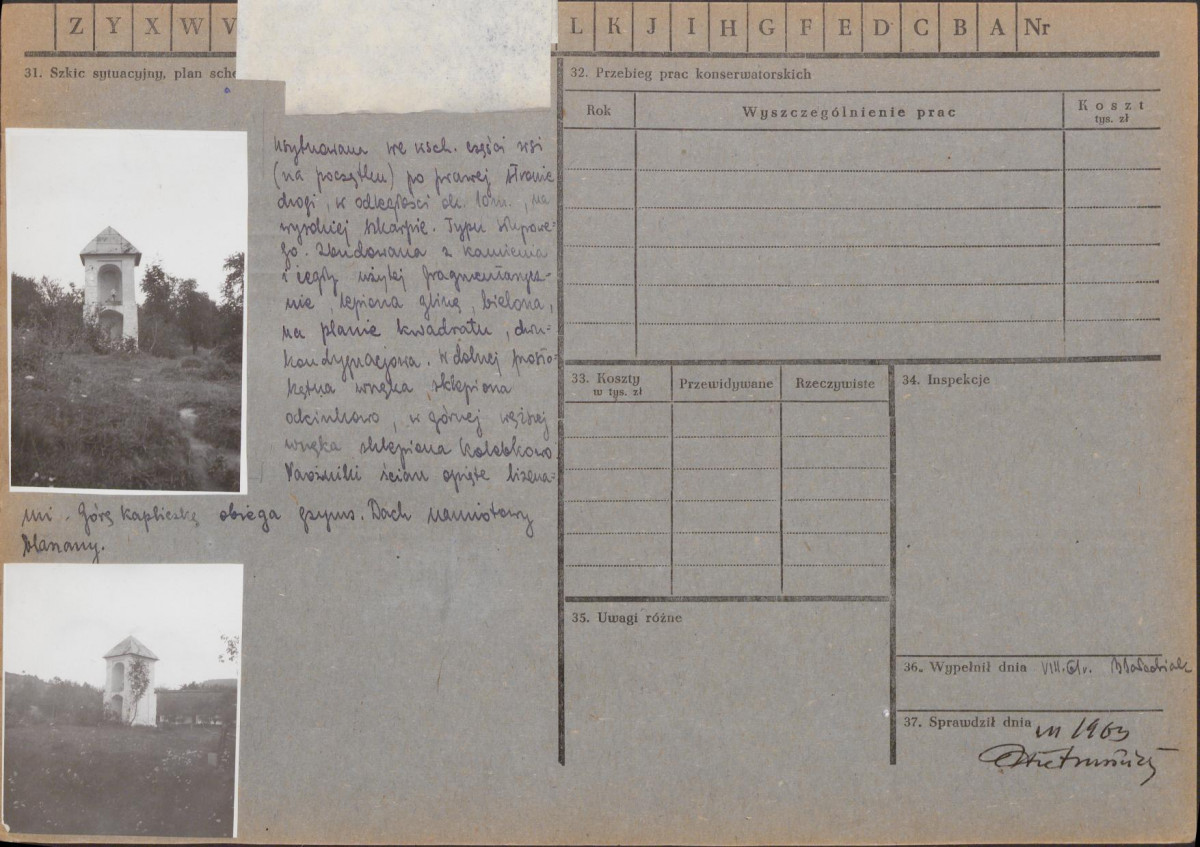 Z Y X W V L K J I H G F E D C B A Nr
31. Szkic sytuacyjny, plan sche
Usytuowana we wsch. części wsi
(na początku) po prawej stronie
drogi, w odległości ok. 10 m., na
wysokiej skarpie. Typu słupowe-
go. Zbudowana z kamienia
i cegły użytej fragmentarycz-
nie lepiona gliną, bielona,
na planie kwadratu, dwu-
kondygnacjowa. W dolnej prosto-
kątna wnęka sklepiona
odcinkowo, w górnej węższej
wnęka sklepiona kolebkowo
Narożniki ścian opięte lizena-
mi. Górę kapliczki obiega gzyms. Dach namiotowy
blaszany.
32. Przebieg prac konserwatorskich
Rok Wyszczególnienie prac Koszt
tys. zł
33. Koszty
w tys. zł
Przewidywane Rzeczywiste
34. Inspekcje
35. Uwagi różne
36. Wypełnił dnia VIII.61r.
37. Sprawdził dnia
III 1963